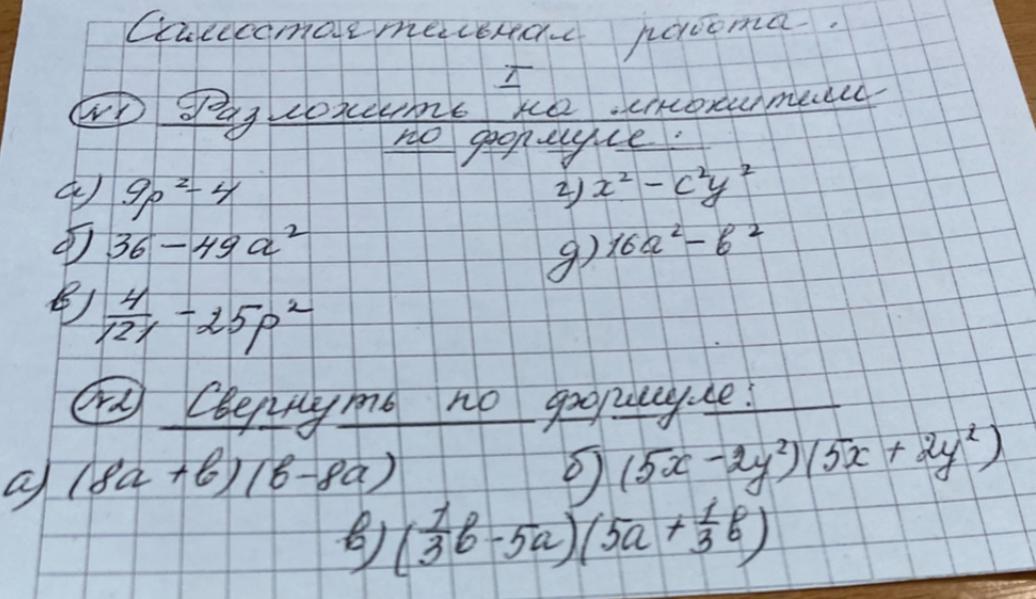 Самостоятельная работа.
I
№1 Разложить на множители
по формуле:
а) 9p² - 4 г) x² - c²y²
б) 36 - 49a² д) 16a² - b²
в) 4/121 - 25p²
№2 Свернуть по формуле:
а) (8a + b)(b - 8a) б) (5x - 2y²)(5x + 2y²)
в) (1/3 b - 5a)(5a + 1/3 b)